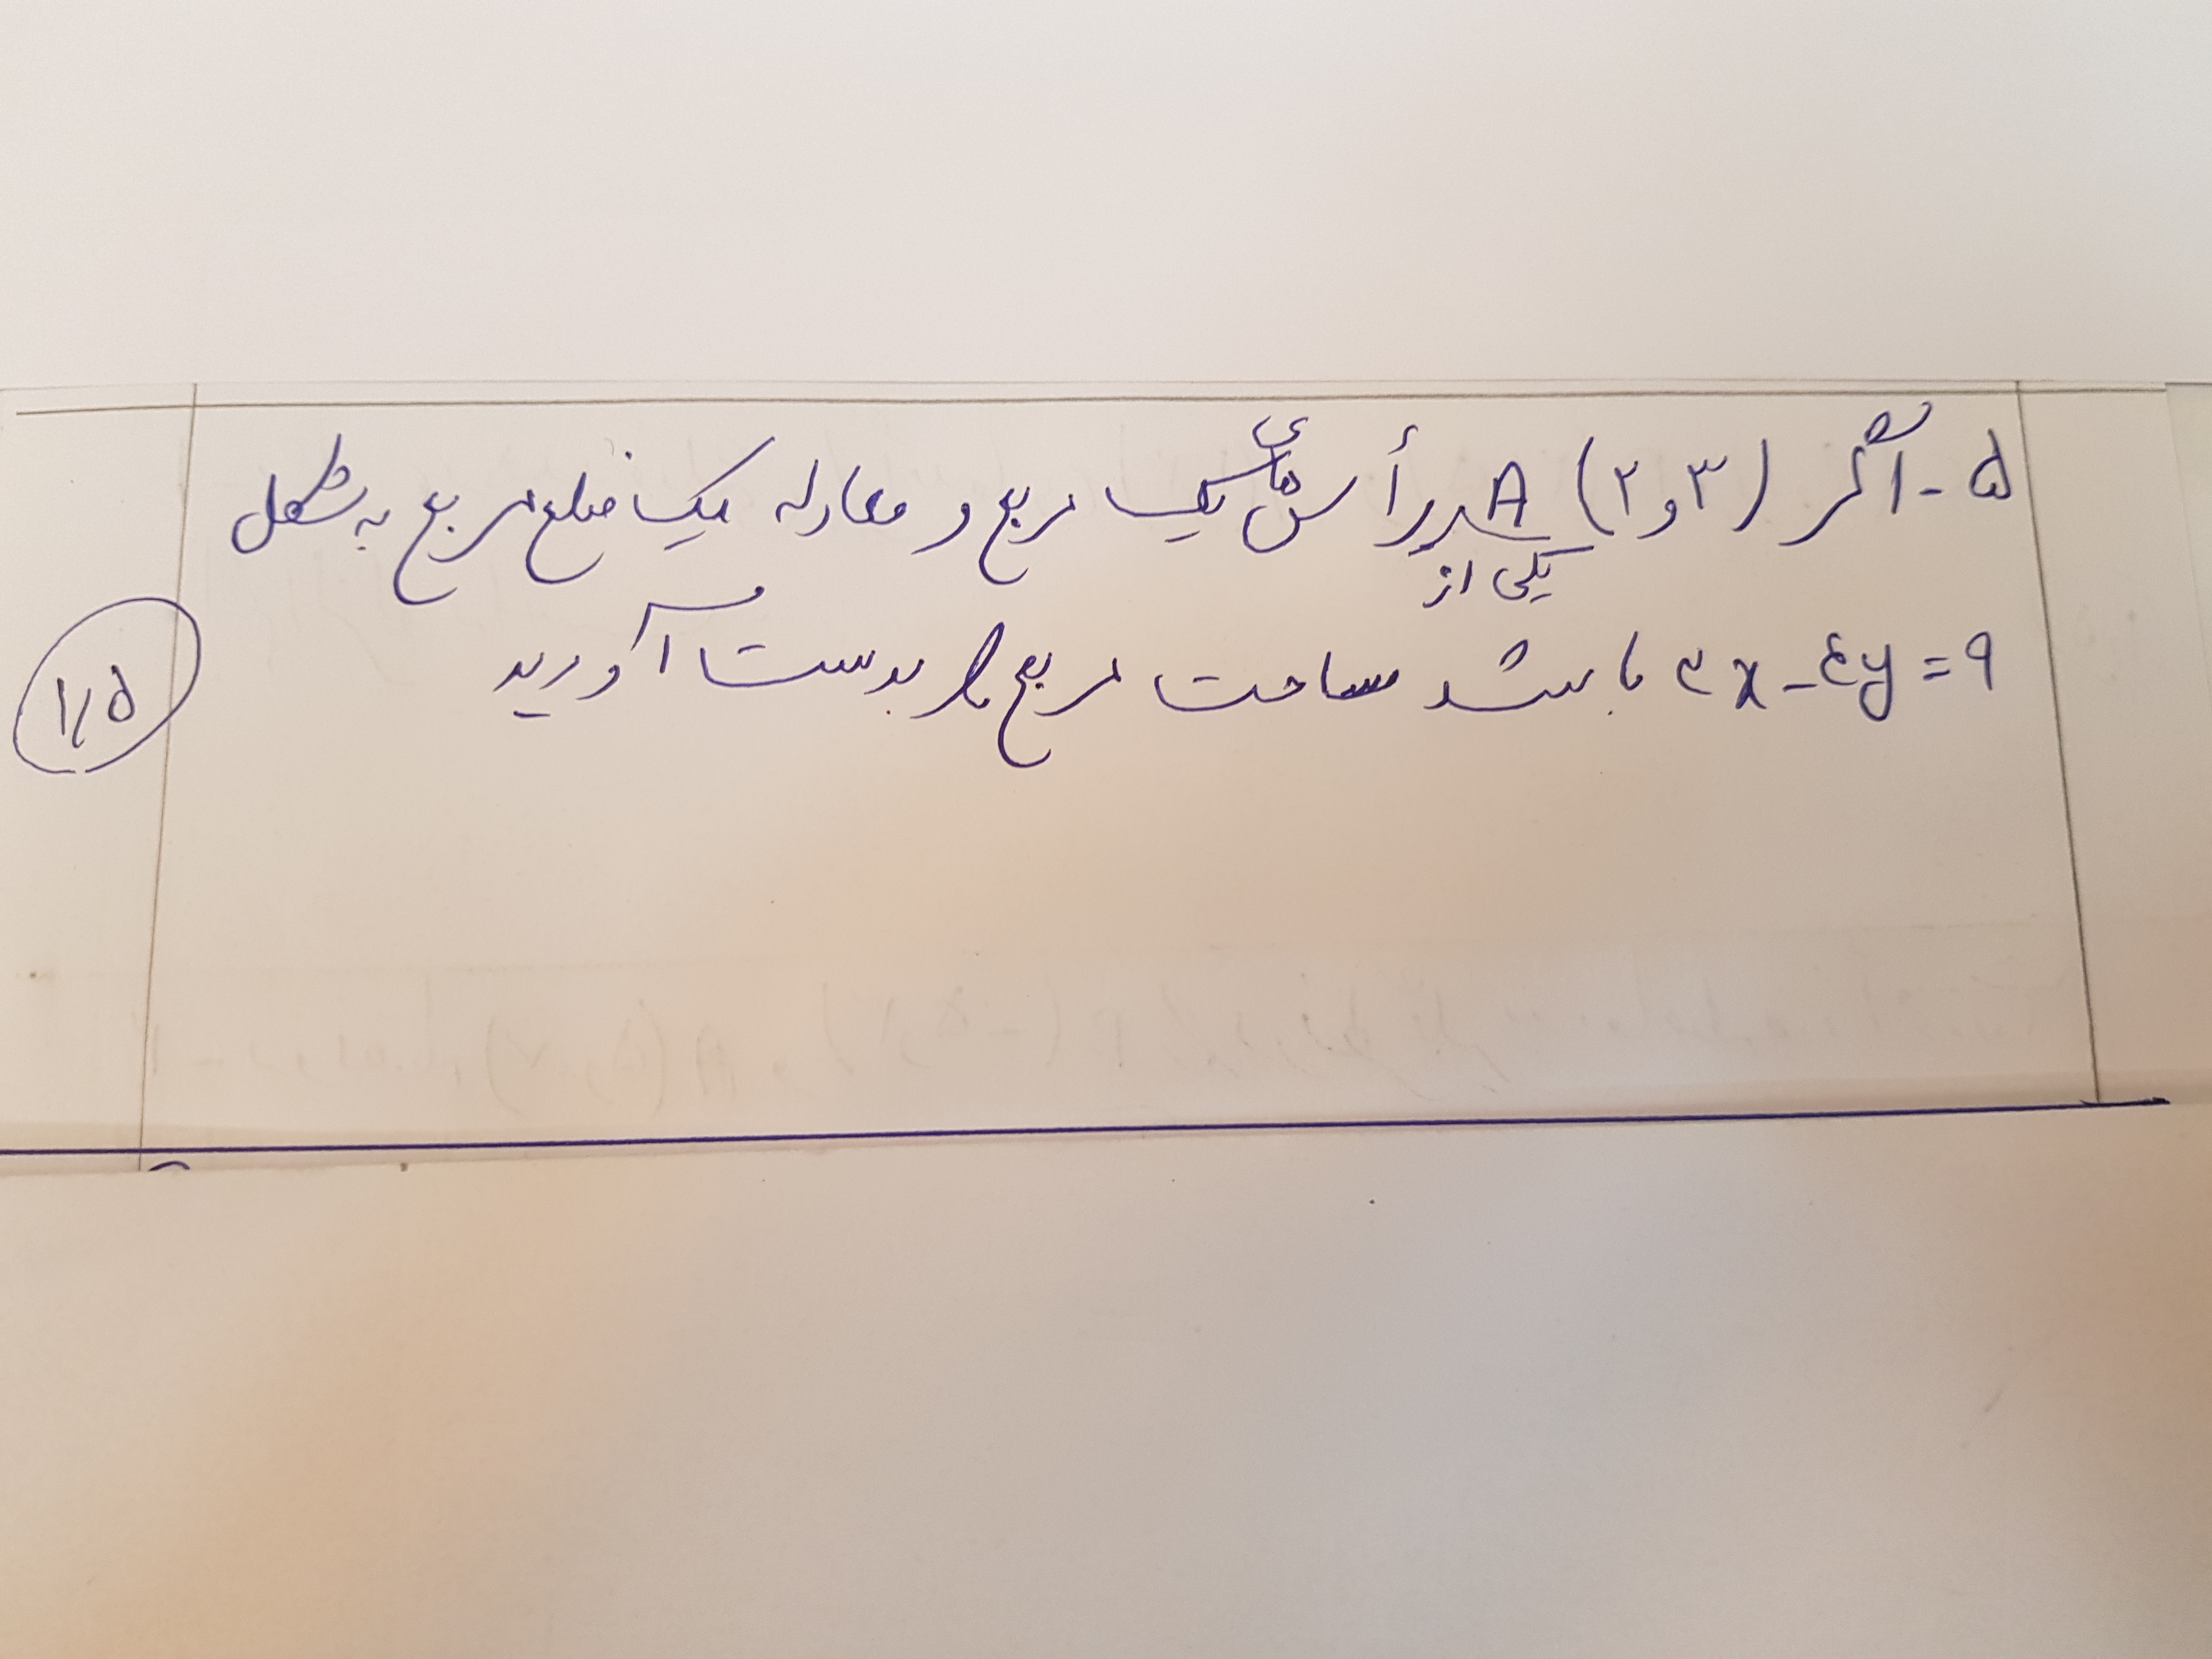 ۵- اگر A (۲ و ۳) یکی از رأس های یک مربع و معادله یک ضلع مربع به شکل
۳x-۴y=۹ باشد مساحت مربع را بدست آورید
۱٫۵